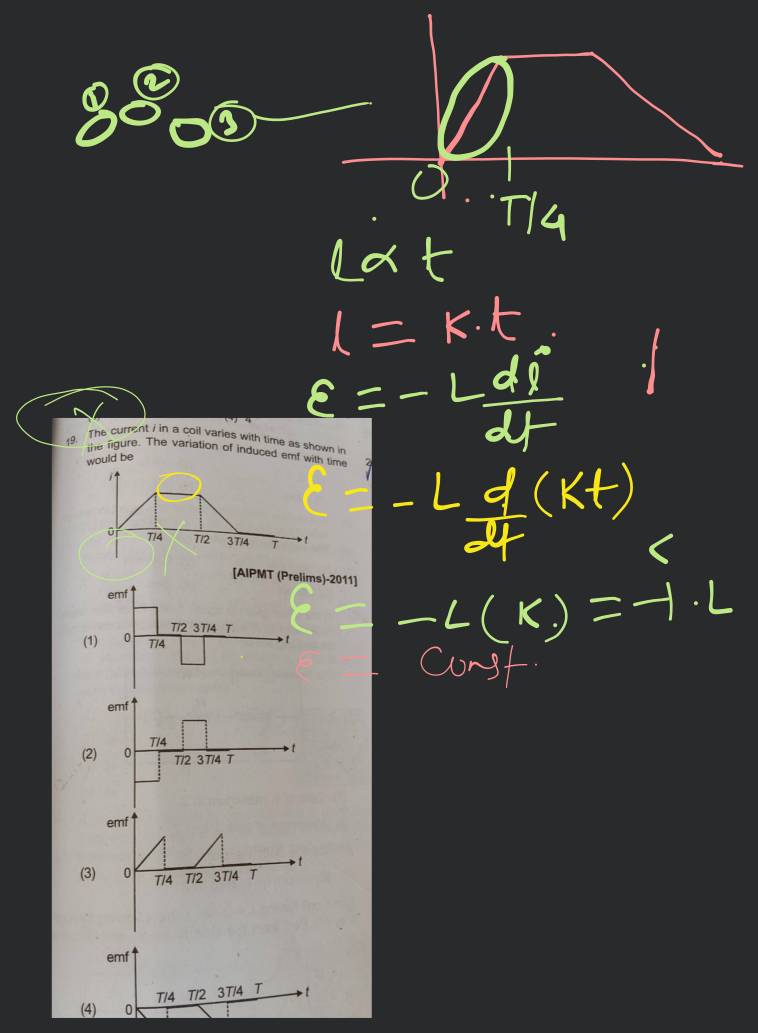 ① ② ③
O T/4
i ∝ t
i = K.t
ε = - L di/dt
(4) 4
19. The current i in a coil varies with time as shown in
the figure. The variation of induced emf with time
would be
2
i
0 T/4 T/2 3T/4 T t
ε = - L d/dt (Kt)
[AIPMT (Prelims)-2011]
ε = - L (K.) = -1.L
ε = Const.
emf
(1) 0 T/4 T/2 3T/4 T t
emf
(2) 0 T/4 T/2 3T/4 T t
emf
(3) 0 T/4 T/2 3T/4 T t
emf
(4) 0 T/4 T/2 3T/4 T t